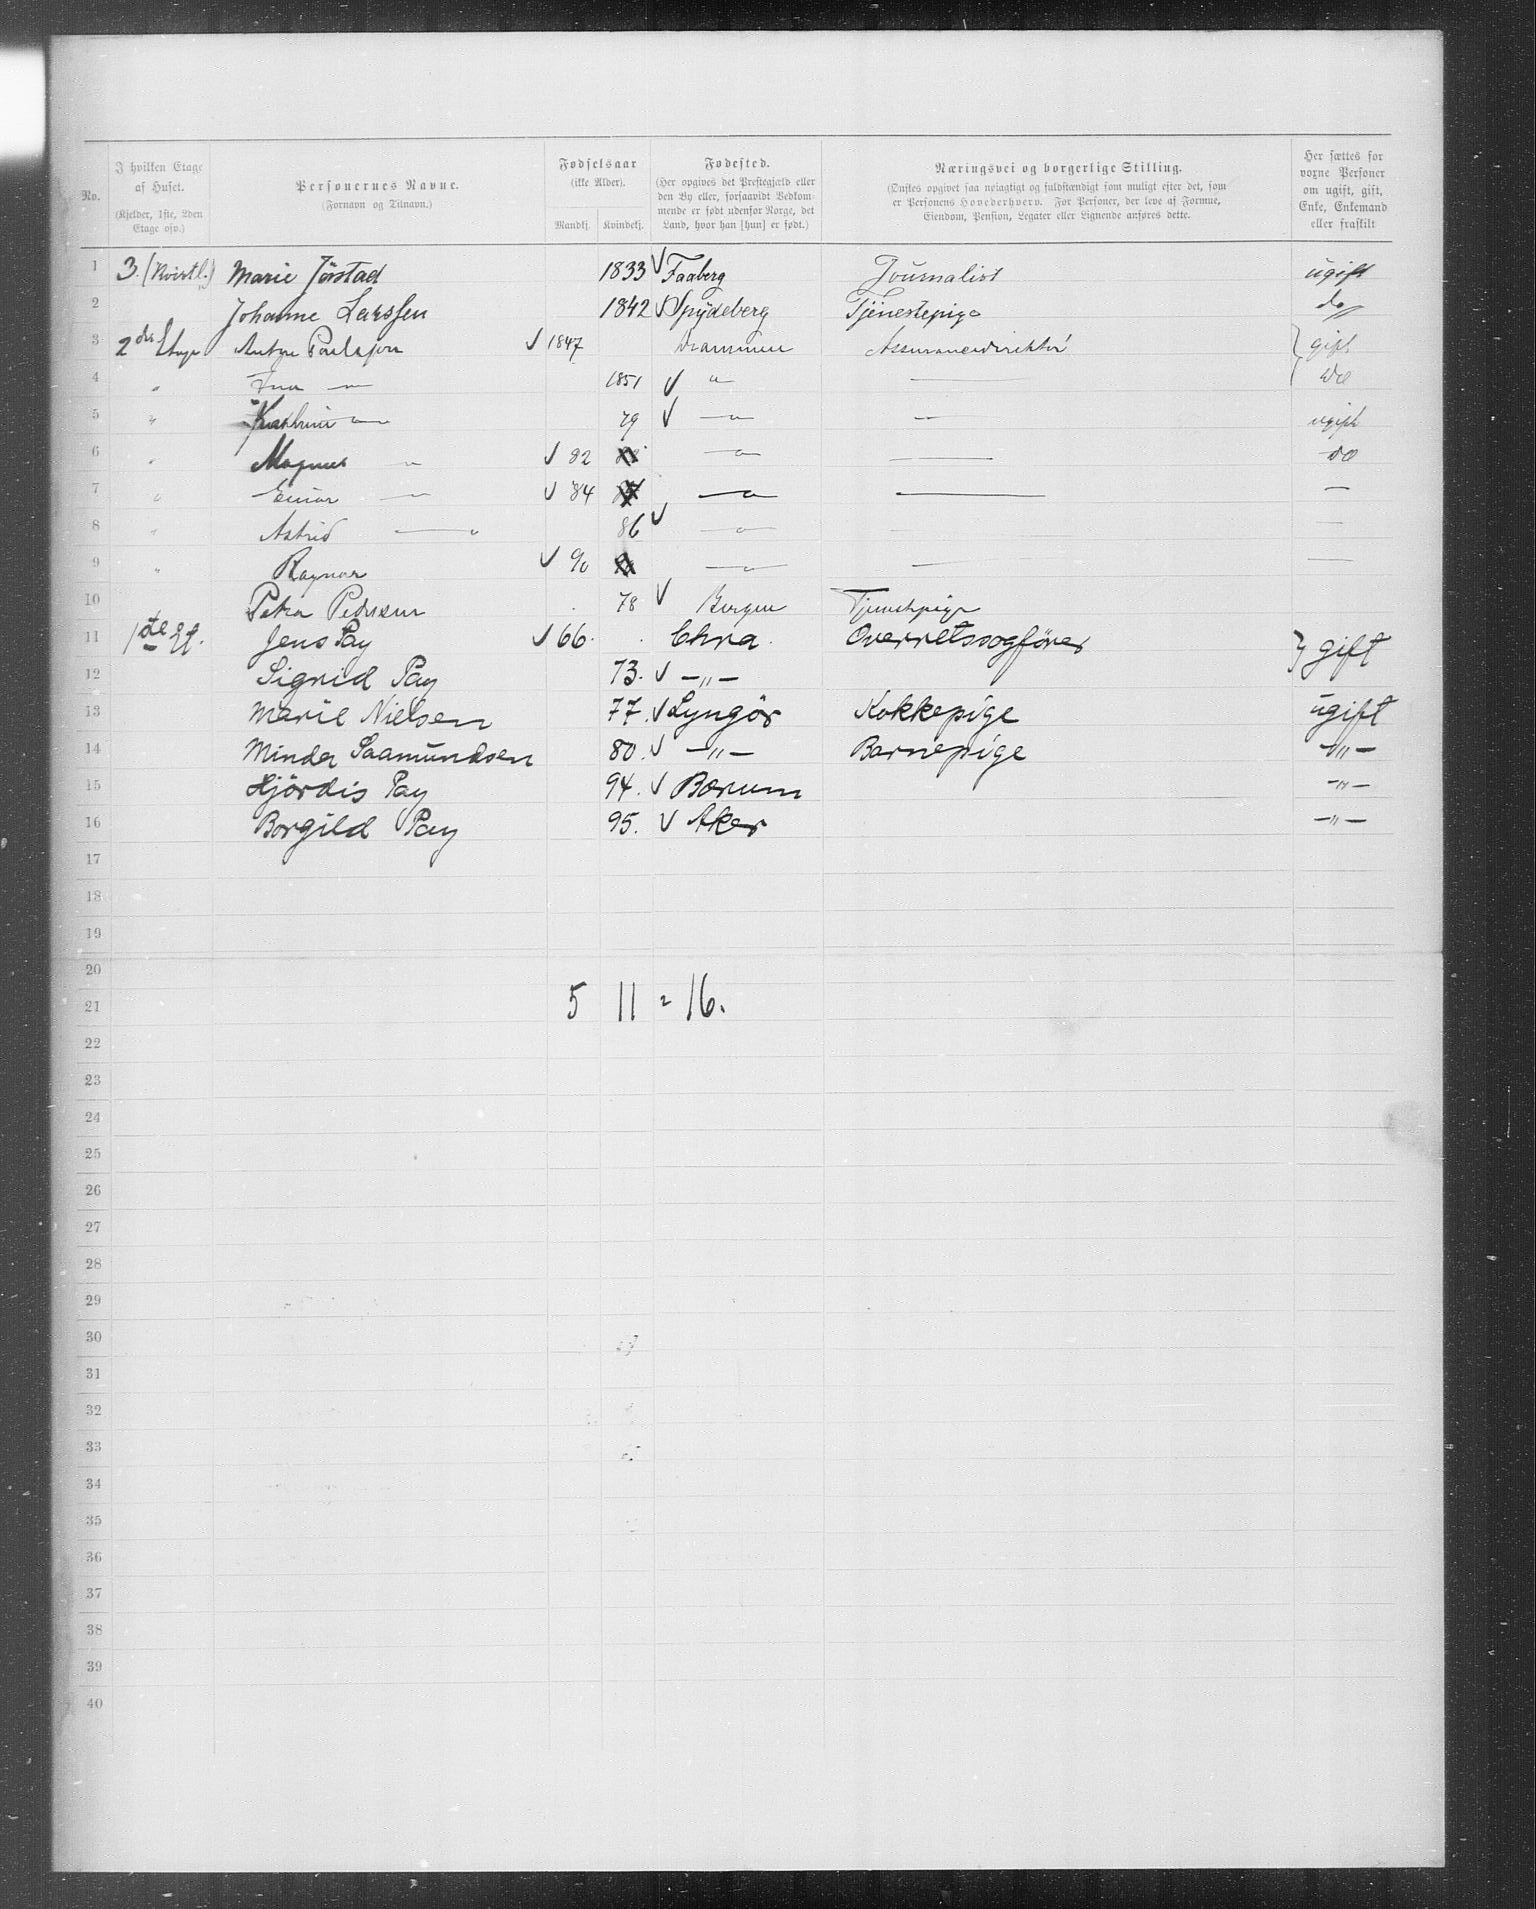 No.
I hvilken Etage af Huset.
(Kjelder, 1ste, 2den Etage osv.)
Personernes Navne.
(Fornavn og Tilnavn.)
Fødselsaar
(ikke Alder).
Mandkj. Kvindekj.
Fødested.
(Her opgives det Prestegjæld eller den By eller, forsaavidt Vedkommende er født udenfor Norge, det Land, hvor han [hun] er født.)
Næringsvei og borgerlige Stilling.
(Ønskes opgivet saa nøiagtigt og fuldstændigt som muligt efter det, som er Personens Hovederhverv. For Personer, der leve af Formue, Eiendom, Pension, Legater eller Lignende anføres dette.
Her sættes for voxne Personer om ugift, gift, Enke, Enkemand eller fraskilt
1 3. (Kvistl.) Marie Jörstad 1833 Faaberg Journalist ugift
2 Johanne Larssen 1842 Spydeberg Tjenestepige do
3 2den Etage 1847 Drammen Assurancedirektör gift
4 " 1851 " do
5 " Kathrine — 79 — " — ugift
6 " Magnus — 82 — " — do
7 " Einar — 84 — " — —
8 " Astrid — " 86 — " — —
9 " Ragnar 90 — " — —
10 Petra Pedersen 78 Bergen Tjenestepige
11 1ste Et. Jens Pay 66. Chra. Overretssagfører gift
12 Sigrid Pay 73. — " —
13 Marie Nielsen 77. Lyngör Kokkepige ugift
14 Minda Saamundsen 80. — " — Barnepige — " —
15 Hjördis Pay 94. Bærum — " —
16 Borgild Pay 95. Aker — " —
17
18
19
20
21 5 11 = 16.
22
23
24
25
26
27
28
29
30
31
32
33
34
35
36
37
38
39
40